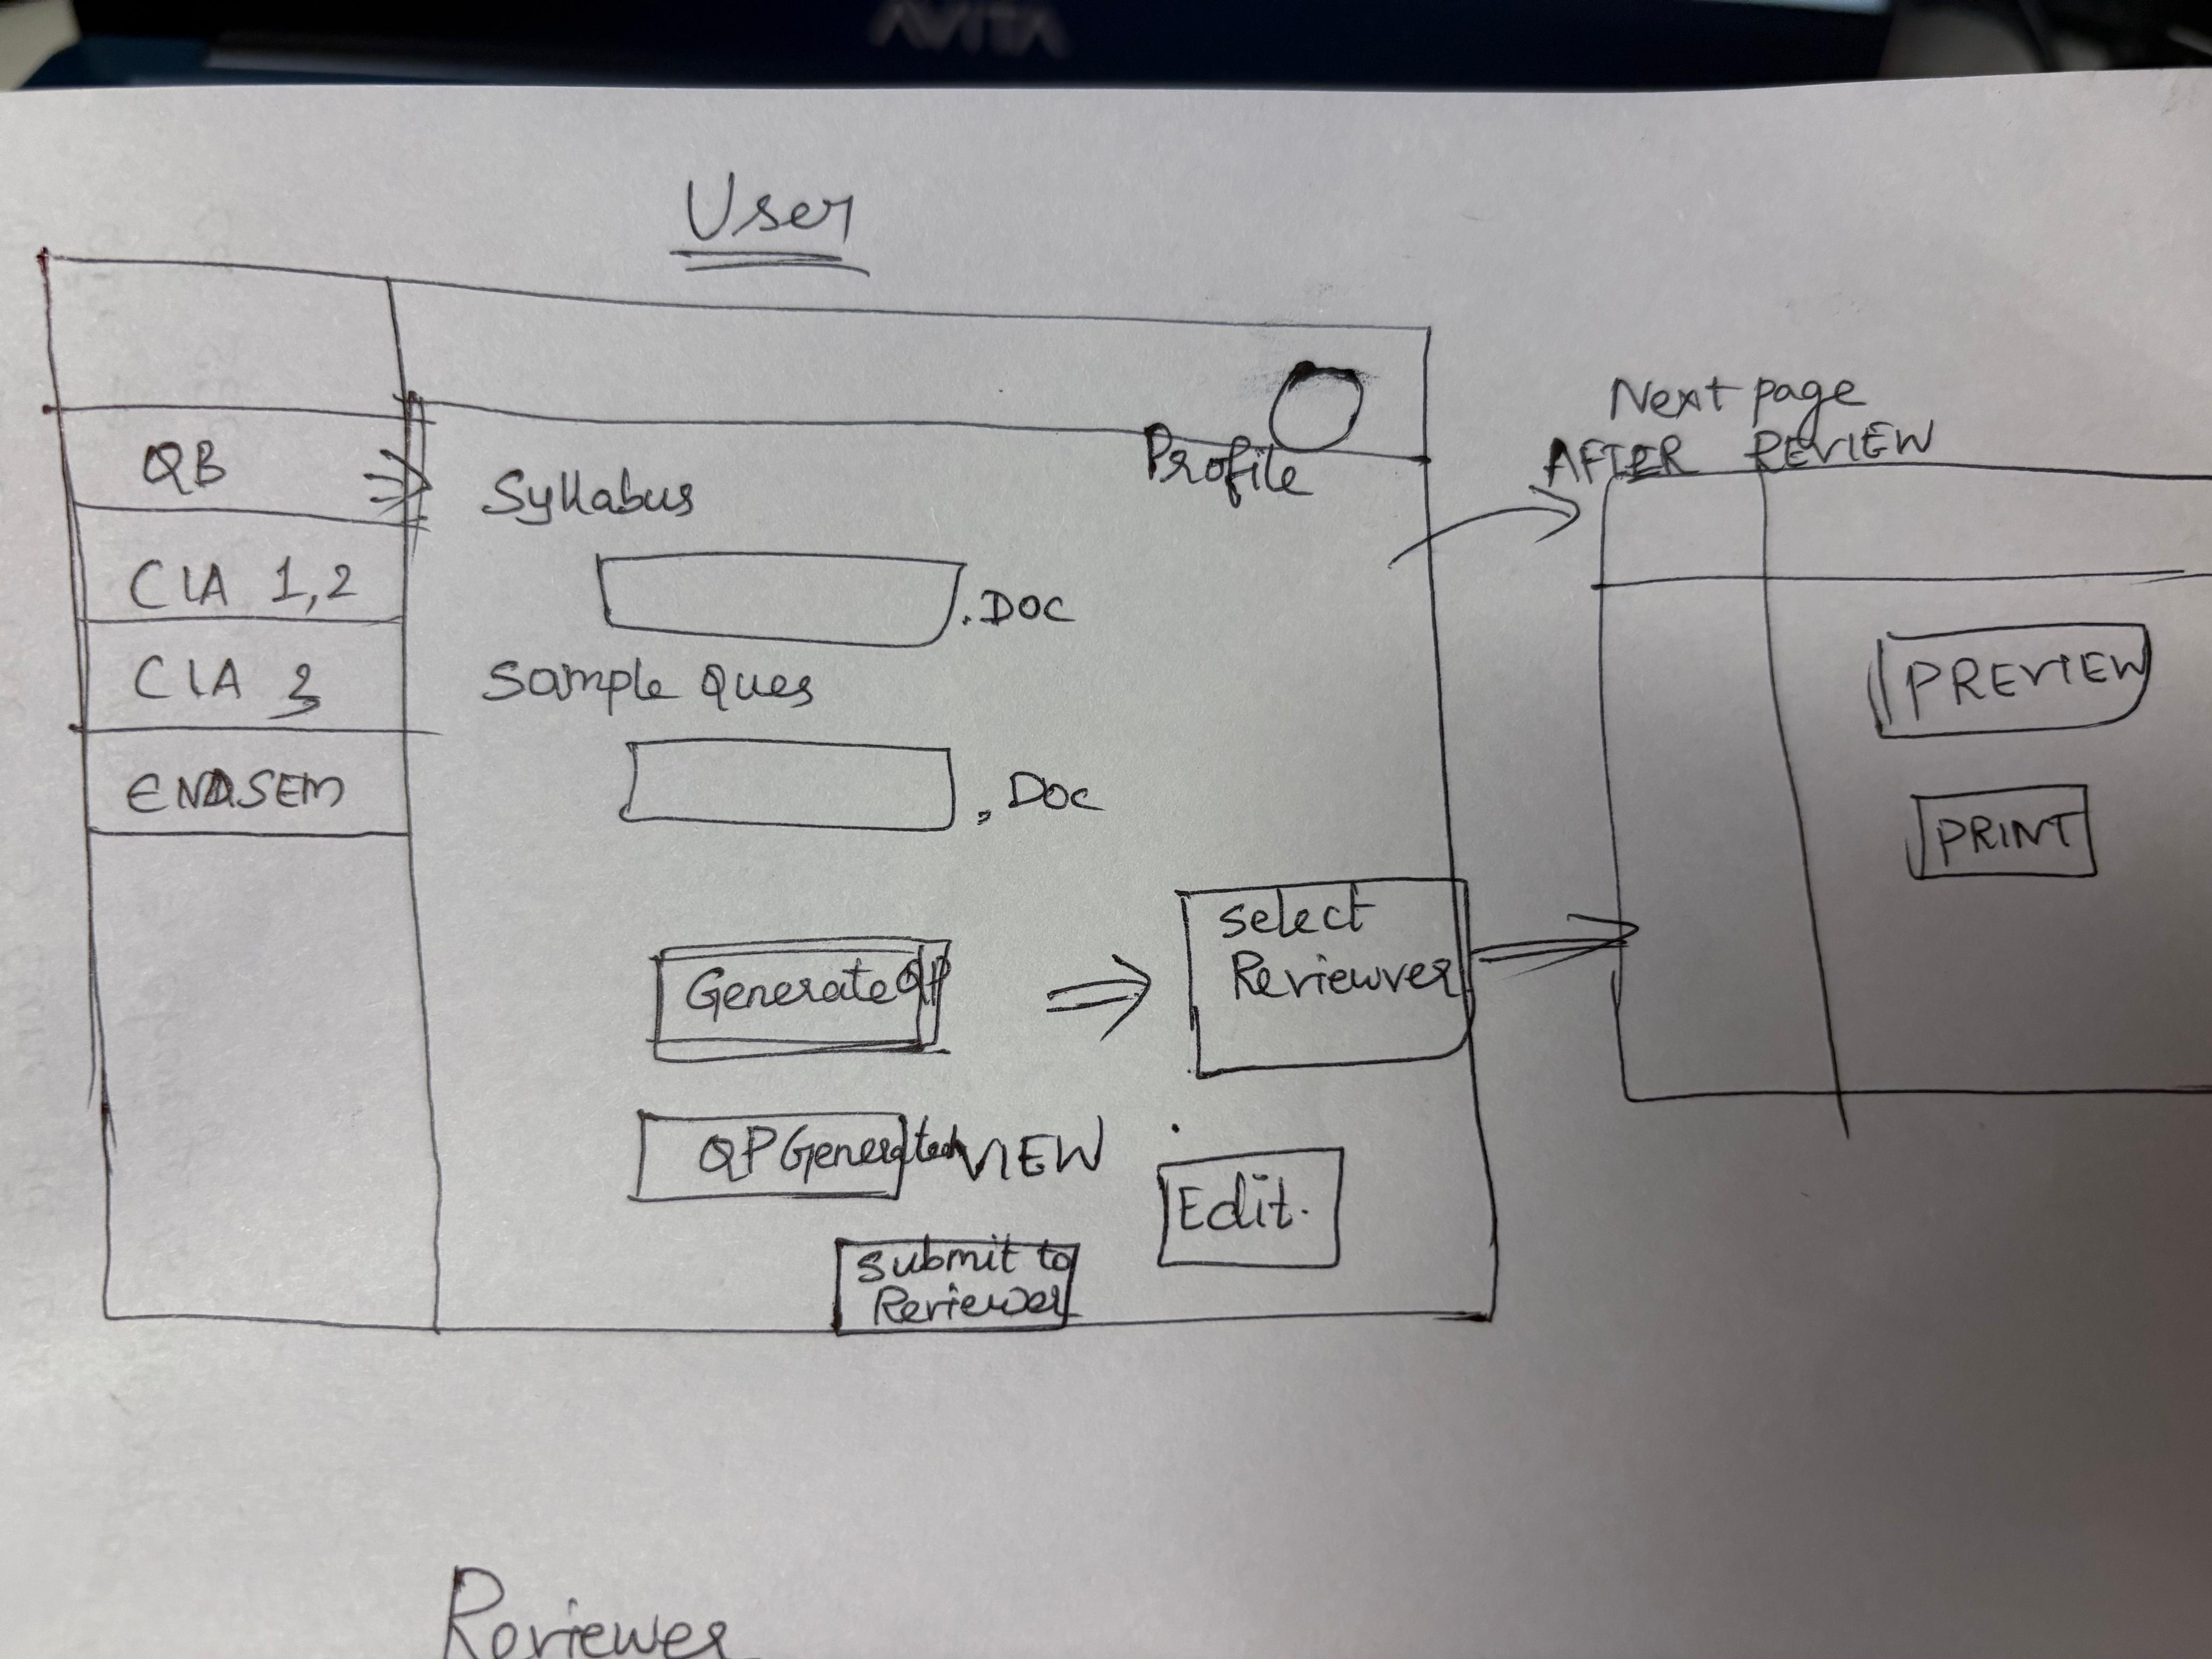 AVITA
User
Profile
QB
CLA 1,2
CLA 3
ENDSEM
Syllabus
.DOC
Sample Ques
.Doc
Generate QP
Select
Reviewver
QP Generated VIEW
Edit.
Submit to
Reviewer
Next page
AFTER REVIEW
PREVIEW
PRINT
Reviewer